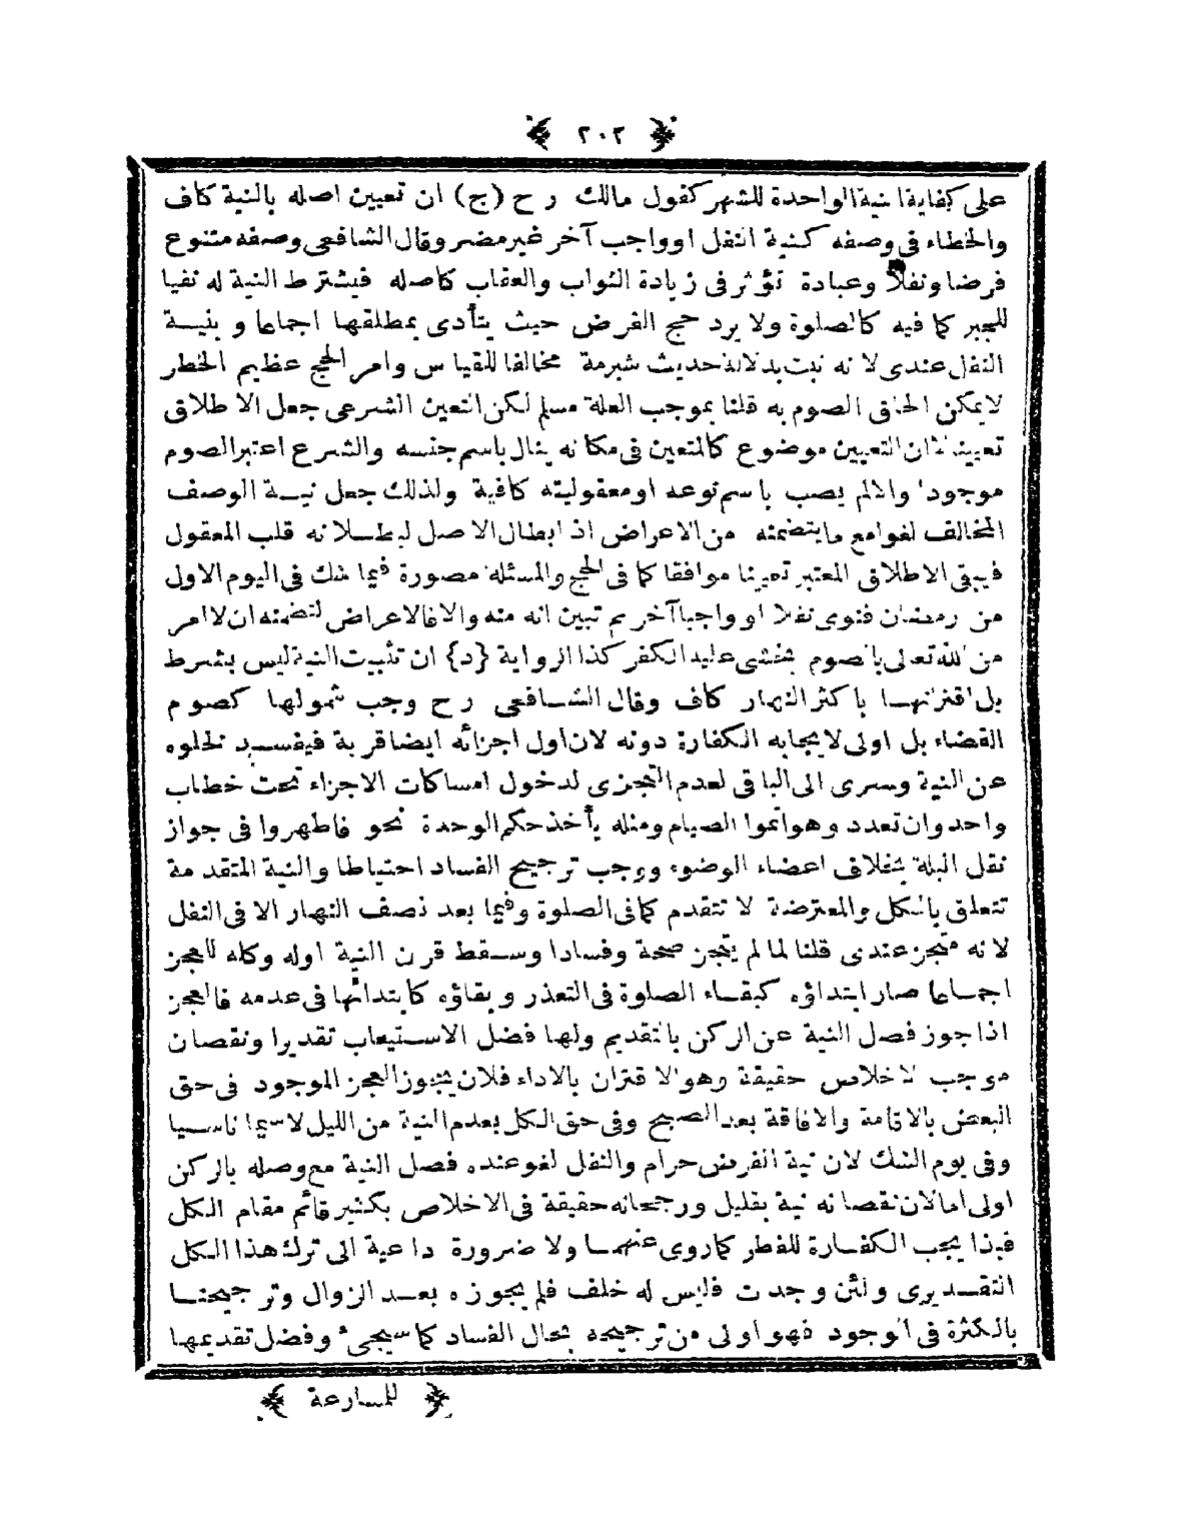 ﴿ ٢٠٢ ﴾
على كفاية النية الواحدة للشهر كقول مالك ر ح (ج) ان تعيين اصله بالنية كاف
والخطاء فى وصفه كنية النفل او واجب آخر غير مضر وقال الشافعى وصفه متنوع
فرضا ونفلا وعبادة تؤثر فى زيادة الثواب والعقاب كاصله فيشترط النية له نفيا
للجبر كما فيه كالصلوة ولا يرد حج الفرض حيث يتأدى بمطلقها اجماعا و بنيـة
النفل عندى لا نه ثبت بدلالة حديث شبرمة مخالفا للقيا س وامر الحج عظيم الخطر
لايمكن الحاق الصوم به قلنا بموجب العلة مسلم لكن التعين الشرعى جعل الا طلاق
تعيينا لان التعيين موضوع كالمتعين فى مكا نه ينال باسم جنسه والشرع اعتبر الصوم
موجودا والالم يصب با سم نوعه او معقوليته كافية ولذلك جعل نيـة الوصف
المخالف لغوا مع مايتضمنه من الاعراض اذ ابطال الا صل لبطـلا نه قلب المعقول
فيبقى الاطلاق المعتبر تعيينا موافقا كما فى الحج والمسئلة مصورة فيما شك فى اليوم الاول
من رمضان فنوى نفلا او واجبا آخر ثم تبين انه منه والا فالاعراض لتضمنه ان لا امر
من الله تعالى بالصوم يخشى عليه الكفر كذا الرواية {د} ان تثبيت النية ليس بشرط
بل اقترانهـا با كثر النهار كاف وقال الشـافعى ر ح وجب شمولها كصوم
القضاء بل اولى لايجابه الكفارة دونه لان اول اجزائه ايضا قربة فيفسـد لخلوه
عن النية وسرى الى الباقى لعدم التجزى لدخول امساكات الاجزاء تحت خطاب
واحد وان تعدد وهو اتموا الصيام ومثله يأخذ حكم الوحدة نحو فاطهروا فى جواز
نقل البلة بخلاف اعضاء الوضوء ووجب ترجيح الفساد احتياطا والنية المتقدمة
تتعلق بالكل والمعترضة لا تتقدم كما فى الصلوة وفيما بعد نصف النهار الا فى النفل
لا نه متجز عندى قلنا لما لم يتجز صحة وفسادا وسـقط قرن النية اوله وكله للعجز
اجمـاعا صار ابتداؤه كبقـاء الصلوة فى التعذر و بقاؤه كابتدائها فى عدمه فالعجز
اذا جوز فصل النية عن الركن بالتقديم ولها فضل الاسـتيعاب تقديرا ونقصان
موجب لاخلاص حقيقة وهو الا قتران بالاداء فلان يجوز العجز الموجود فى حق
البعض بالاقامة والافاقة بعد الصبح وفى حق الكل بعدم النية من الليل لاسيما ناسـيا
وفى يوم الشك لان نية الفرض حرام والنفل لغو عنده فصل النية مع وصله بالركن
اولى امالان نقصانه نية بقليل ورجحانه حقيقة فى الاخلاص بكثير قائم مقام الكل
فبذا يجب الكفـارة للفطر كما روى عنهمـا ولا ضرورة داعية الى ترك هذا الكل
التقـديرى ولئن وجدت فليس له خلف فلم يجوزه بعـد الزوال وترجيحنـا
بالكثرة فى الوجود فهو اولى من ترجيحه بحال الفساد كما سيجئ وفضل تقديمها
﴿ للمسارعة ﴾